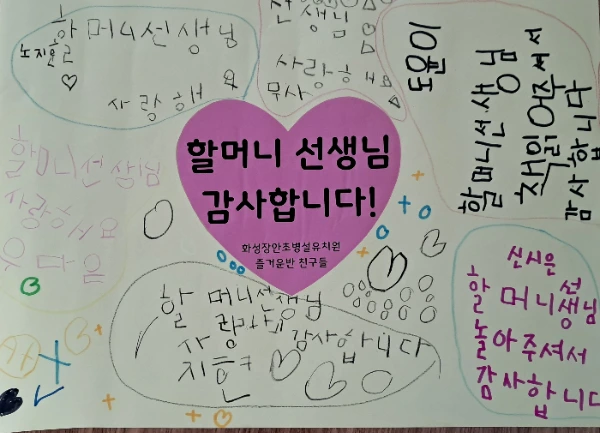 할머니선생님
노지율
사랑해요
선생님
사랑해요
도윤이
할머니선생님
책읽어주셔서
감사합니다
할머니 선생님
감사합니다!
화성장안초병설유치원
즐거운반 친구들
할머니선상님
사랑하서요
할 머니선생님
사랑
감사합니다
지훈
신시은
할머니선생님
놀아주셔서
감사합니다